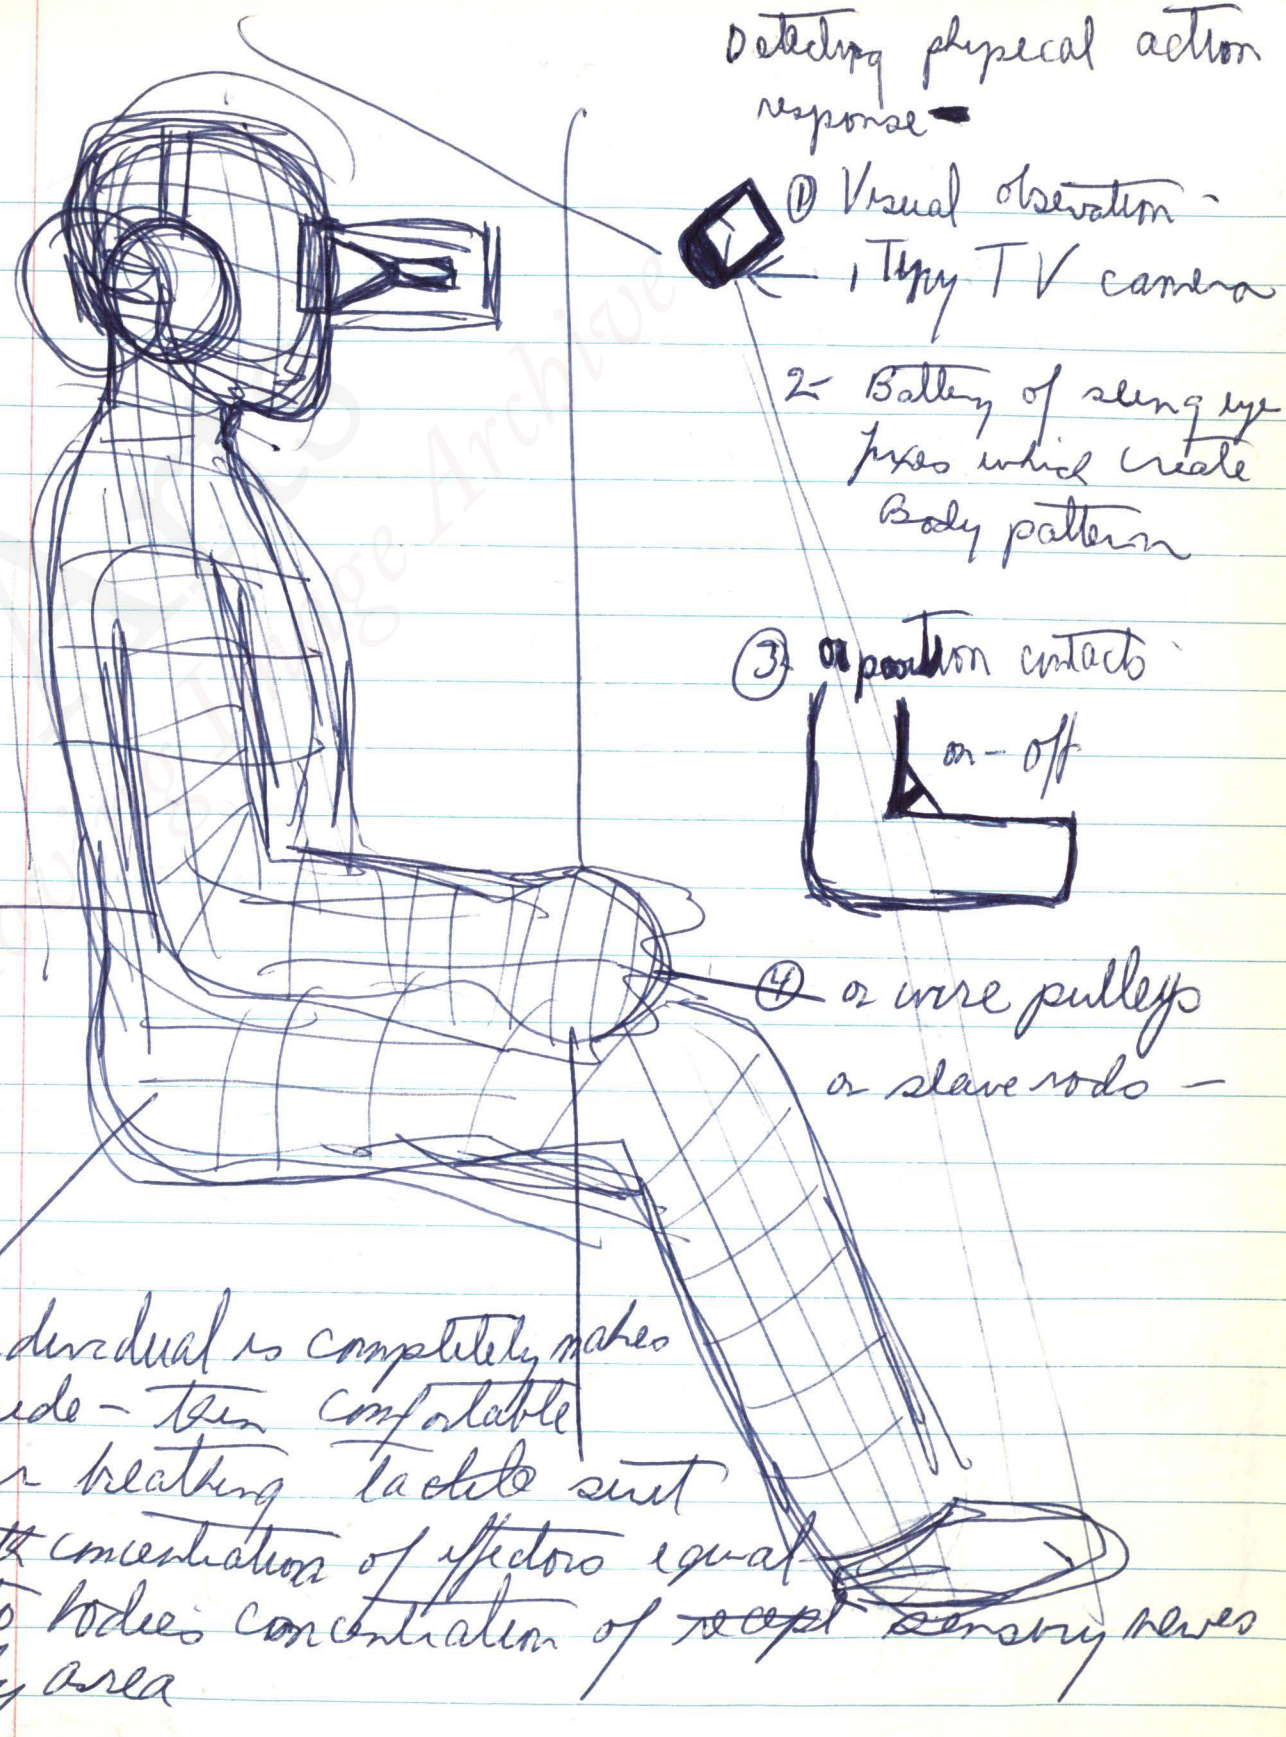 Detecting physical action
response -
① Visual obsevation -
TV camera
2- Battery of seeing eye
which create
Body pattern
③ or position contacts
on - off
④ or wire pulleys
or slave rods -
dividual is completely makes
ide - thin comfortable
r breathing tactile suit
th concentration of effectors equal
to bodies concentration of recept sensory nerves
y area
Image Archive